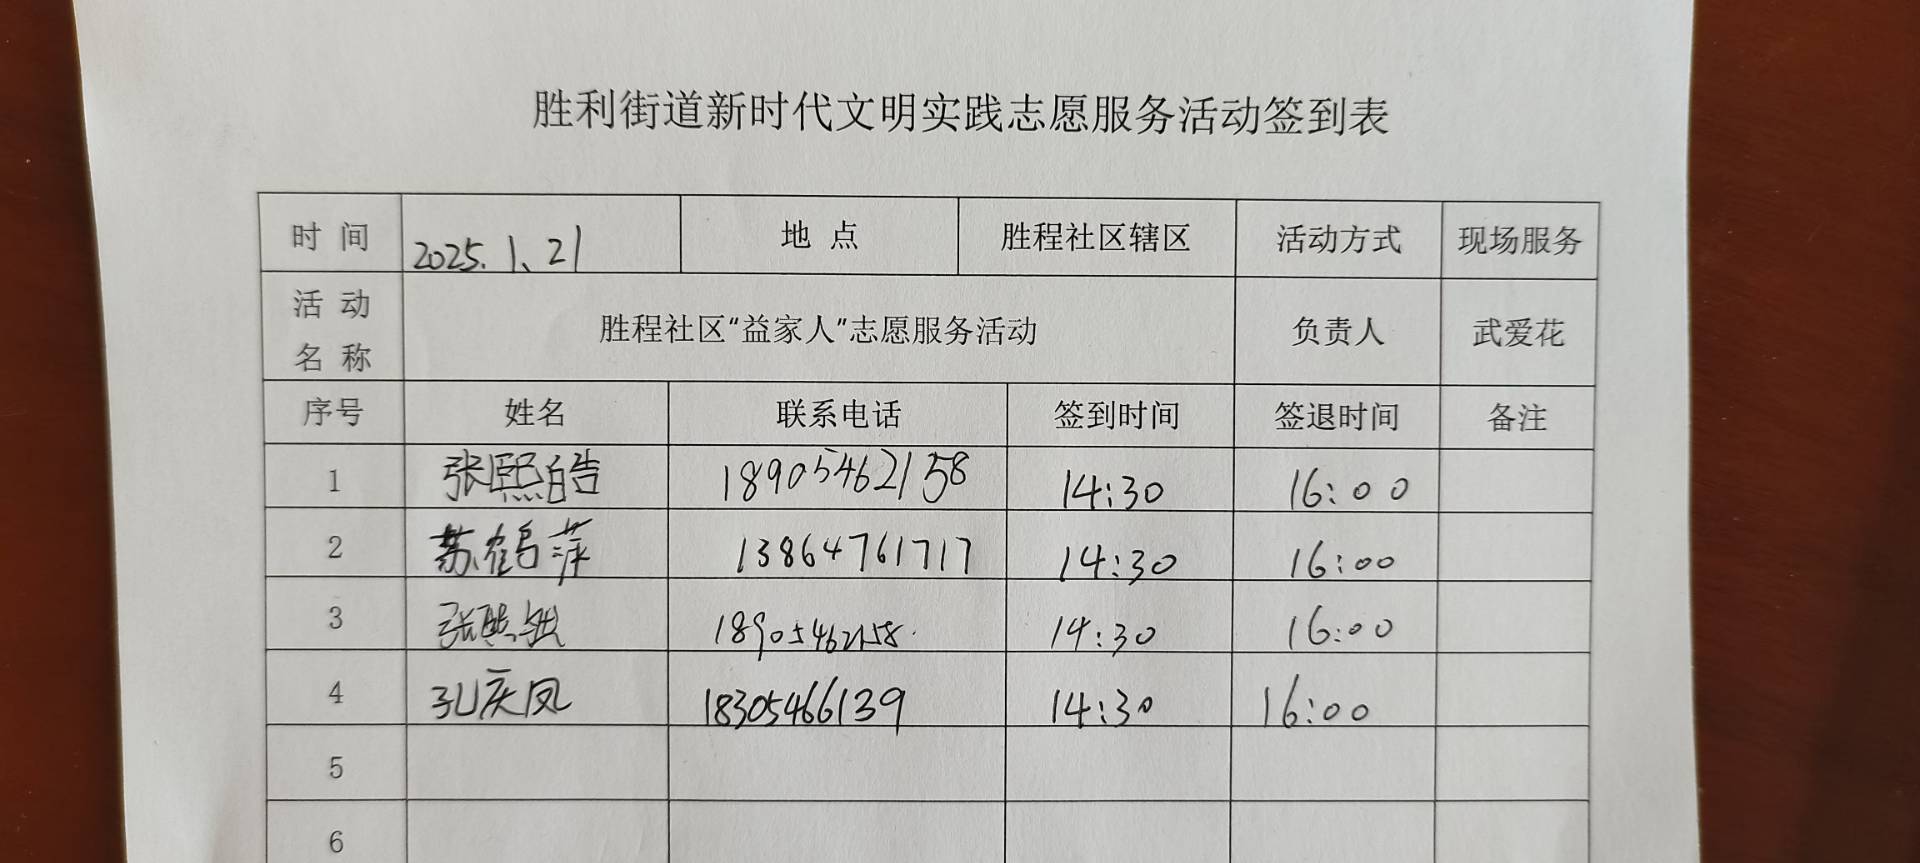 胜利街道新时代文明实践志愿服务活动签到表
时 间 2025.1、21 地 点 胜程社区辖区 活动方式 现场服务
活 动 名 称 胜程社区“益家人”志愿服务活动 负责人 武爱花
序号 姓名 联系电话 签到时间 签退时间 备注
1 张熙皓 18905462158 14:30 16:00
2 苏鹤萍 13864761717 14:30 16:00
3 张熙 18905462158 14:30 16:00
4 孔庆凤 18305466139 14:30 16:00
5
6